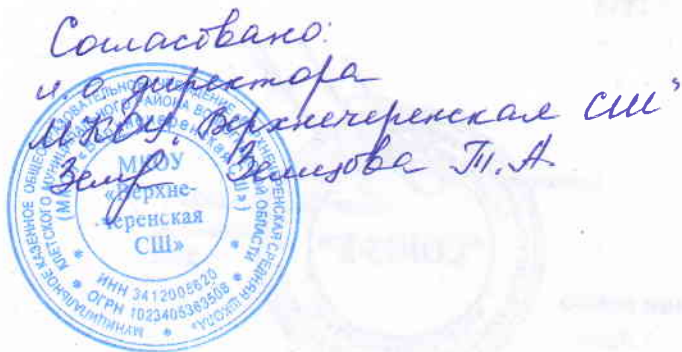 Согласовано:
и.о. директора
МКОУ "Верхнечеренская СШ"
Земцова Т.А.
МУНИЦИПАЛЬНОЕ КАЗЕННОЕ ОБЩЕОБРАЗОВАТЕЛЬНОЕ УЧРЕЖДЕНИЕ «ВЕРХНЕЧЕРЕНСКАЯ СРЕДНЯЯ ШКОЛА»
КЛЕТСКОГО МУНИЦИПАЛЬНОГО РАЙОНА ВОЛГОГРАДСКОЙ ОБЛАСТИ
МКОУ
«Верхне-
черенская
СШ»
ИНН 3412005620
ОГРН 1023405363508